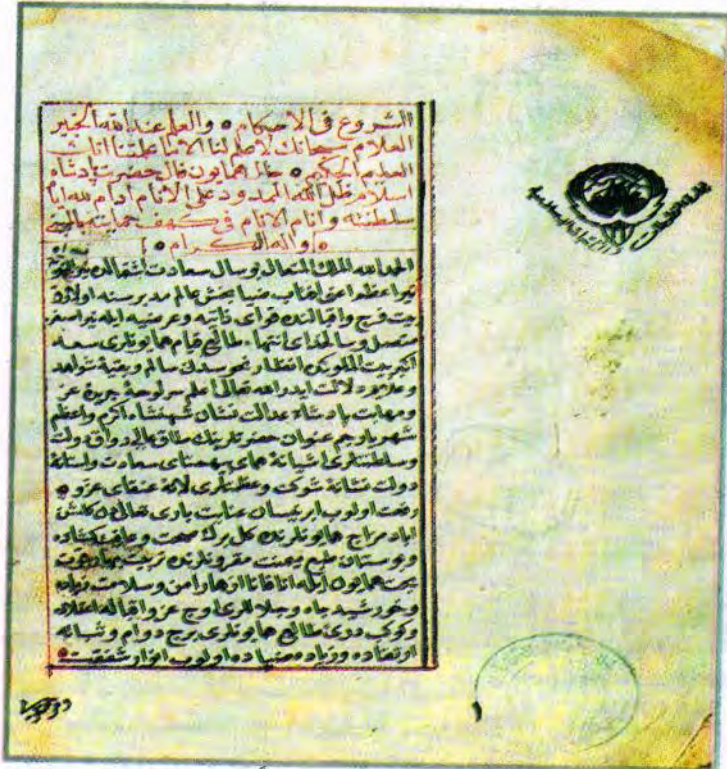 الشروع فى الاحكام ° والعلم عند الله الخبير
العلام سبحانك لا علم لنا الا ما علمتنا انك انت
العليم الحكيم ° طالع همايون فال حضرت پادشاه
اسلام ظل الله الممدود على الانام ادام الله ايام
سلطنته وانام الانام فى كهف حمايته بالنبى
° واله الكرام °
الحمد لله الملك المتعال بو سال سعادت
نير اعظم اعنى افتاب ضيا بخش عالم مدبر سنه اولوب
بيت فرح واقبالنده قواى ذاتيه وعرضيه ايله
متصل وسالخداى انتها طالع قيام همايونلرى سعد
اكبر بيت الملوكين انظار نحوسدن سالم وبقية شواهد
دلالت ايدر الله تعالى اعلم سر لوحة جريدة عز
ومهابت پادشاه عدالت نشان شهنشاه اكرم واعظم
شهريار جم عنوان حضرتلرينك طاق عالى رواق دولت
وسلطنتلرى اشيانة هماى سعادت واستانة
دولت نشانة شوكت وعظمتلرى لانة عنقاى عز و °
رفعت اولوب ابر نيسان عنايت بارى تعاليدن كلشن
اباد مزاج همايونلرنده كل برك صحت وعافيت كشاده
وبوستان طبع مقرونلرنده تربيت
همايون ايله انا فانا ازهار امن وسلامت زياده
وخورشيد جاه وجلاللرى اوج عز واقباله اعتلاده
وكوكب درى طالع همايونلرى برج دوام وثباته
ارتقاده وزياده ضياده اولوب انوار شفقت °
١